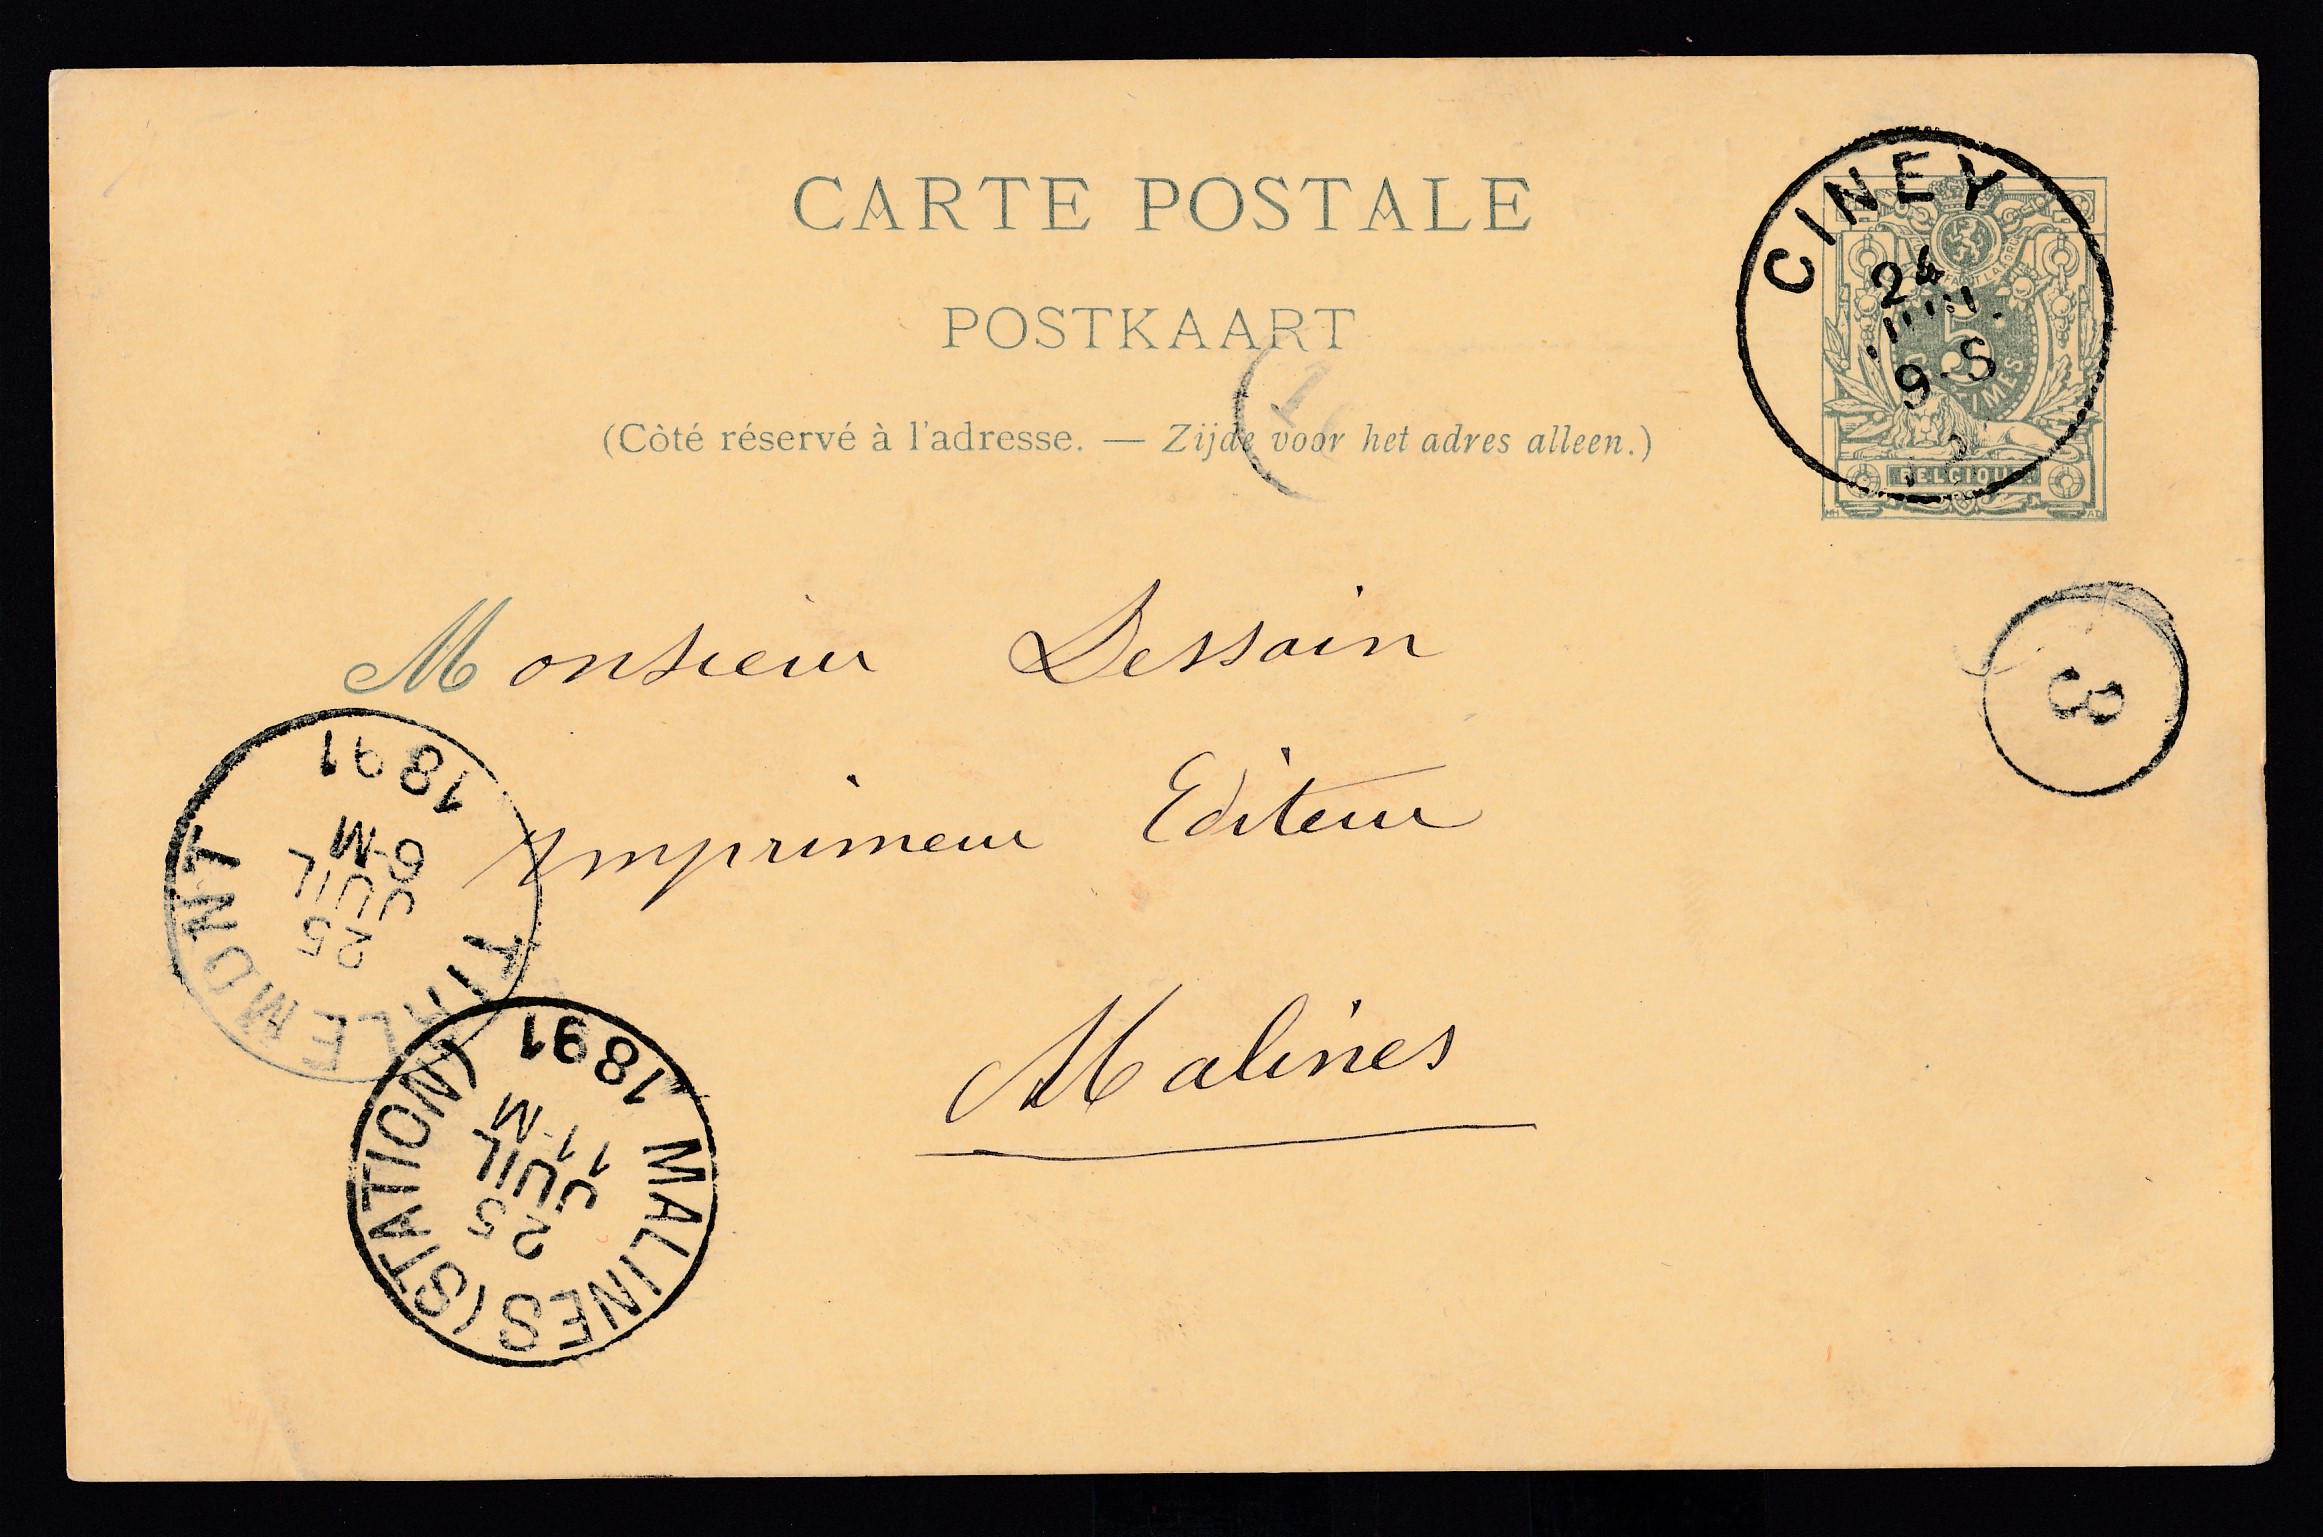 CARTE POSTALE
POSTKAART
(Côté réservé à l'adresse. — Zijde voor het adres alleen.)
CINEY
24
9-S
5
BELGIQUE
3
1
Monsieur Dessain
Imprimeur Editeur
Malines
TIRLEMONT
25
JUIL
6-M
1891
MALINES (STATION)
25
JUIL
11-M
1891